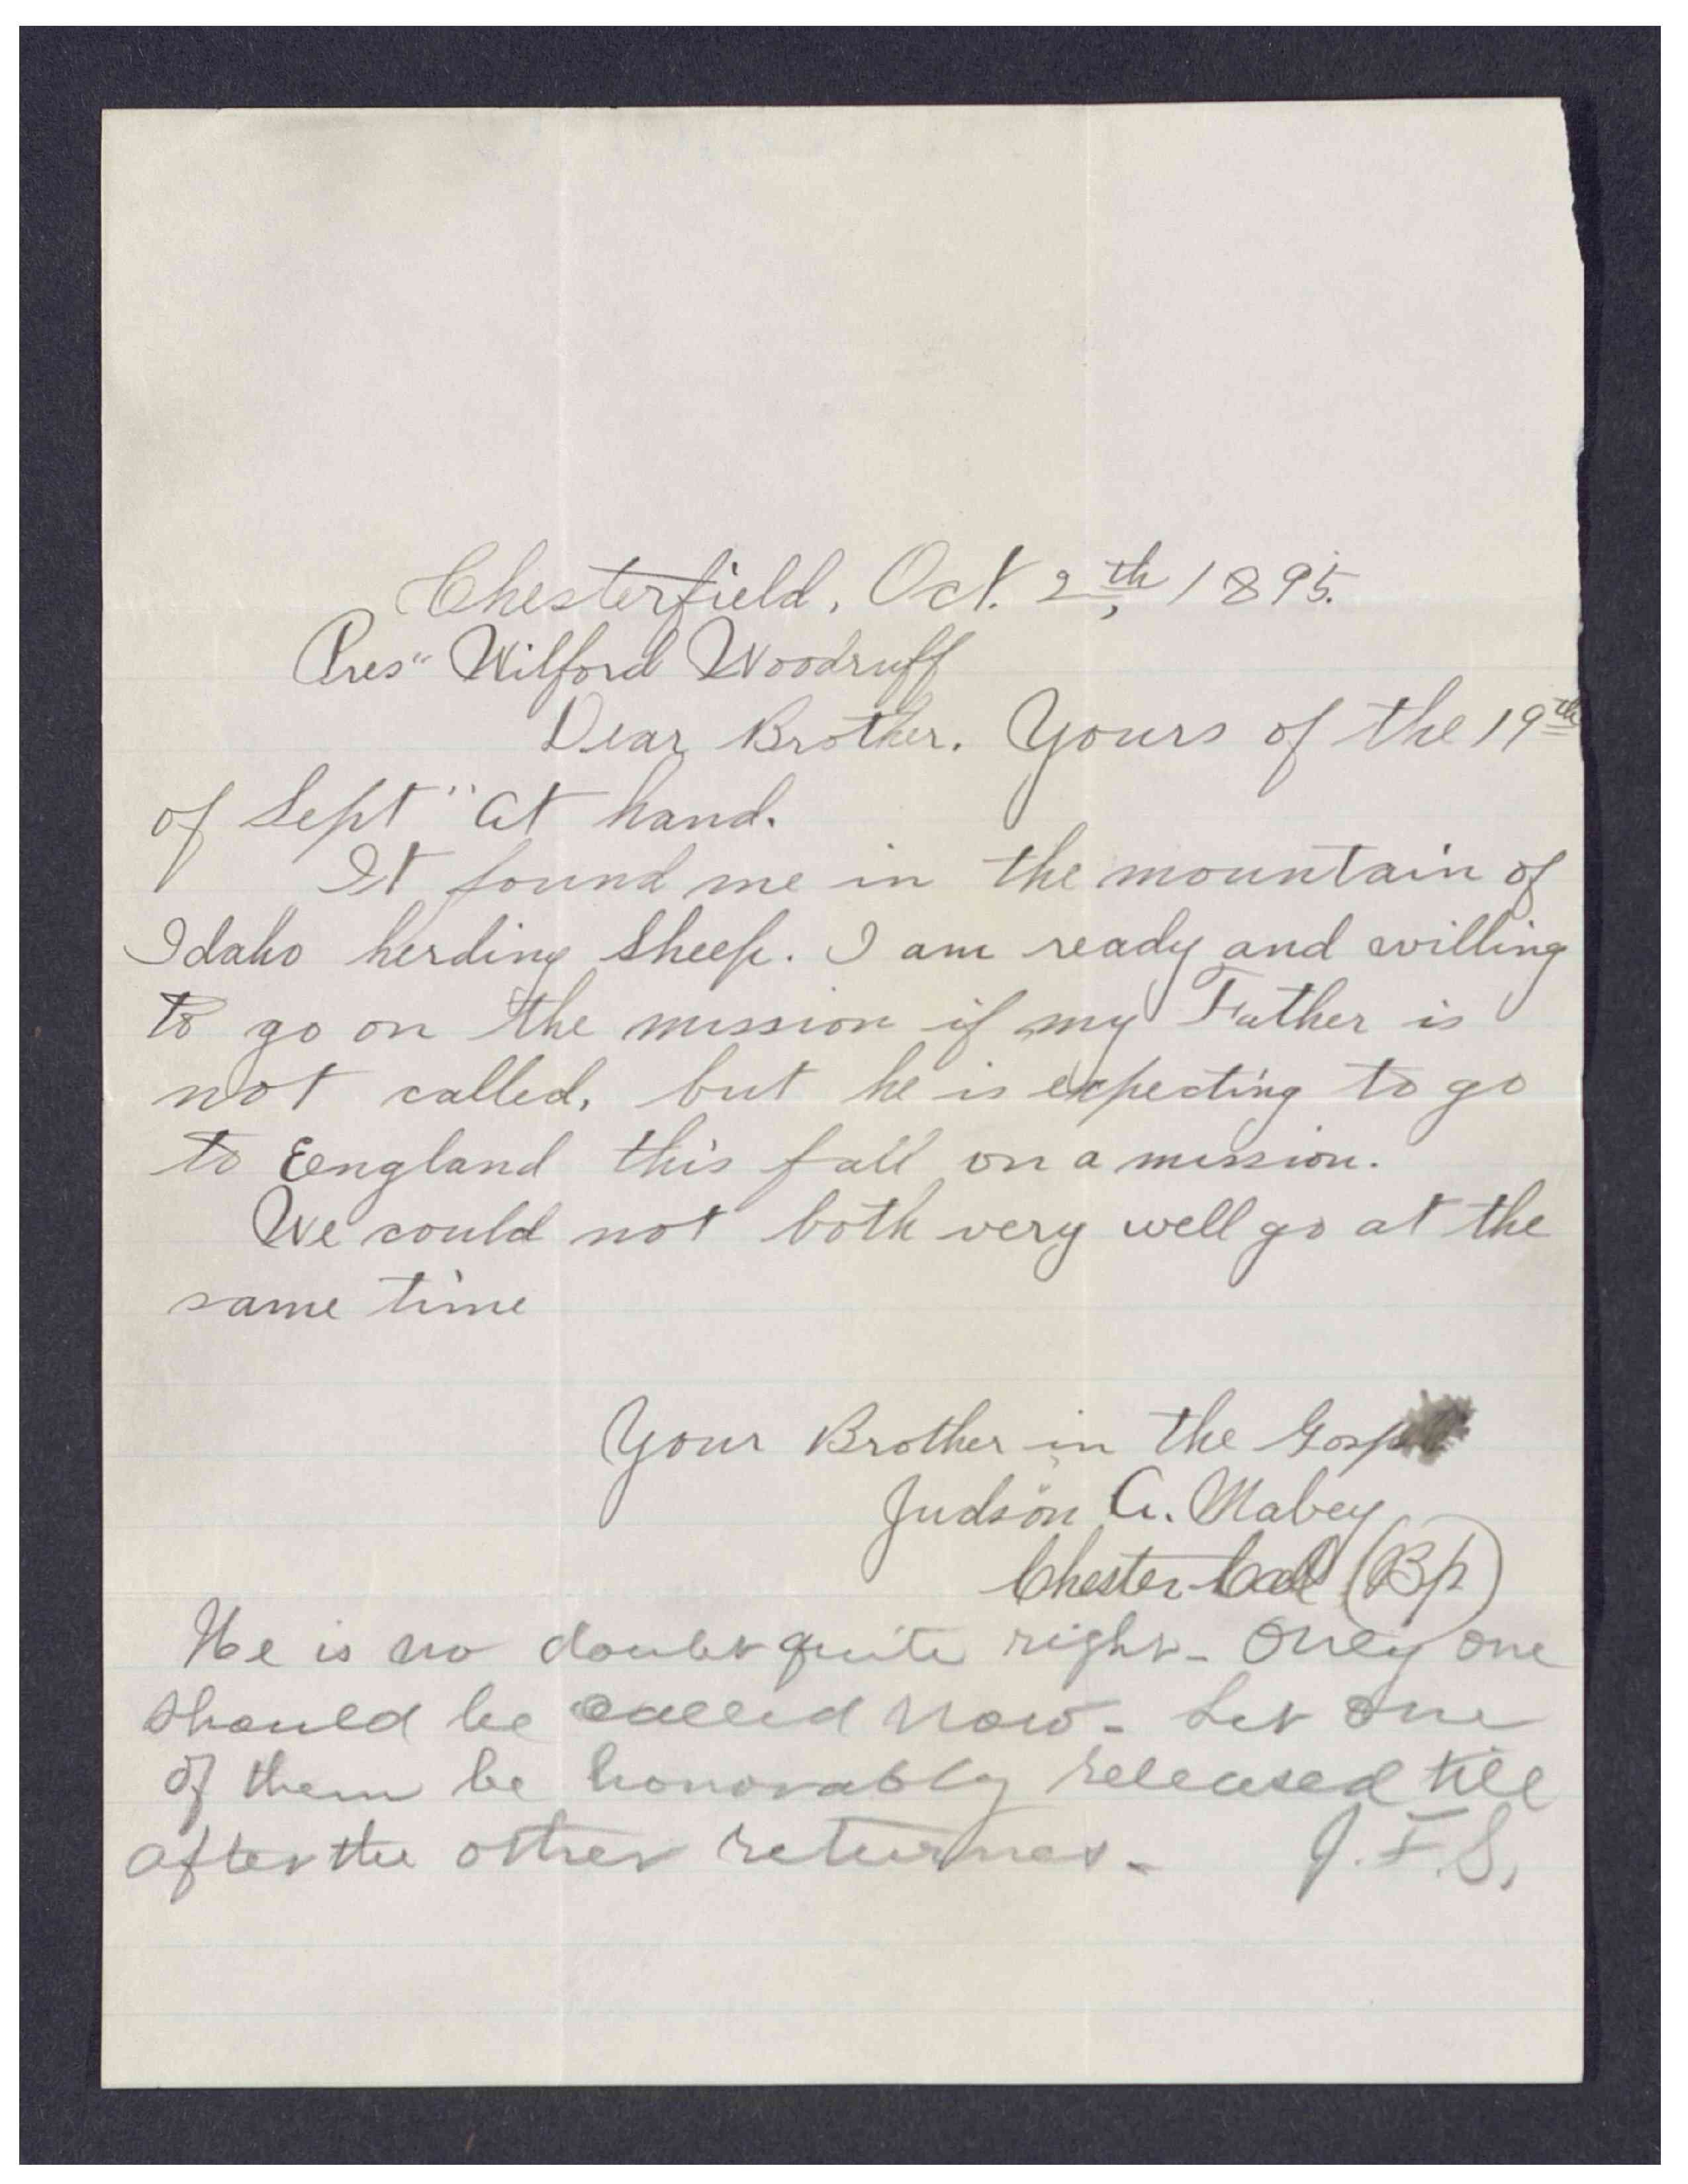 Chesterfield, Oct. 2th, 1895.
Pres" Wilford Woodruff
Dear Brother. Yours of the 19th
of Sept" at hand.
It found me in the mountain of
Idaho herding sheep. I am ready and willing
to go on the mission if my Father is
not called, but he is expecting to go
to Eengland this fall on a mission.
We could not both very well go at the
same time
Your Brother in the Gospel
Judson A. Mabey
Chester Call (Bp)
He is no doubt quite right - Only one
should be called now - Let one
of them be honorably released till
after the other returnes - J. F. S.